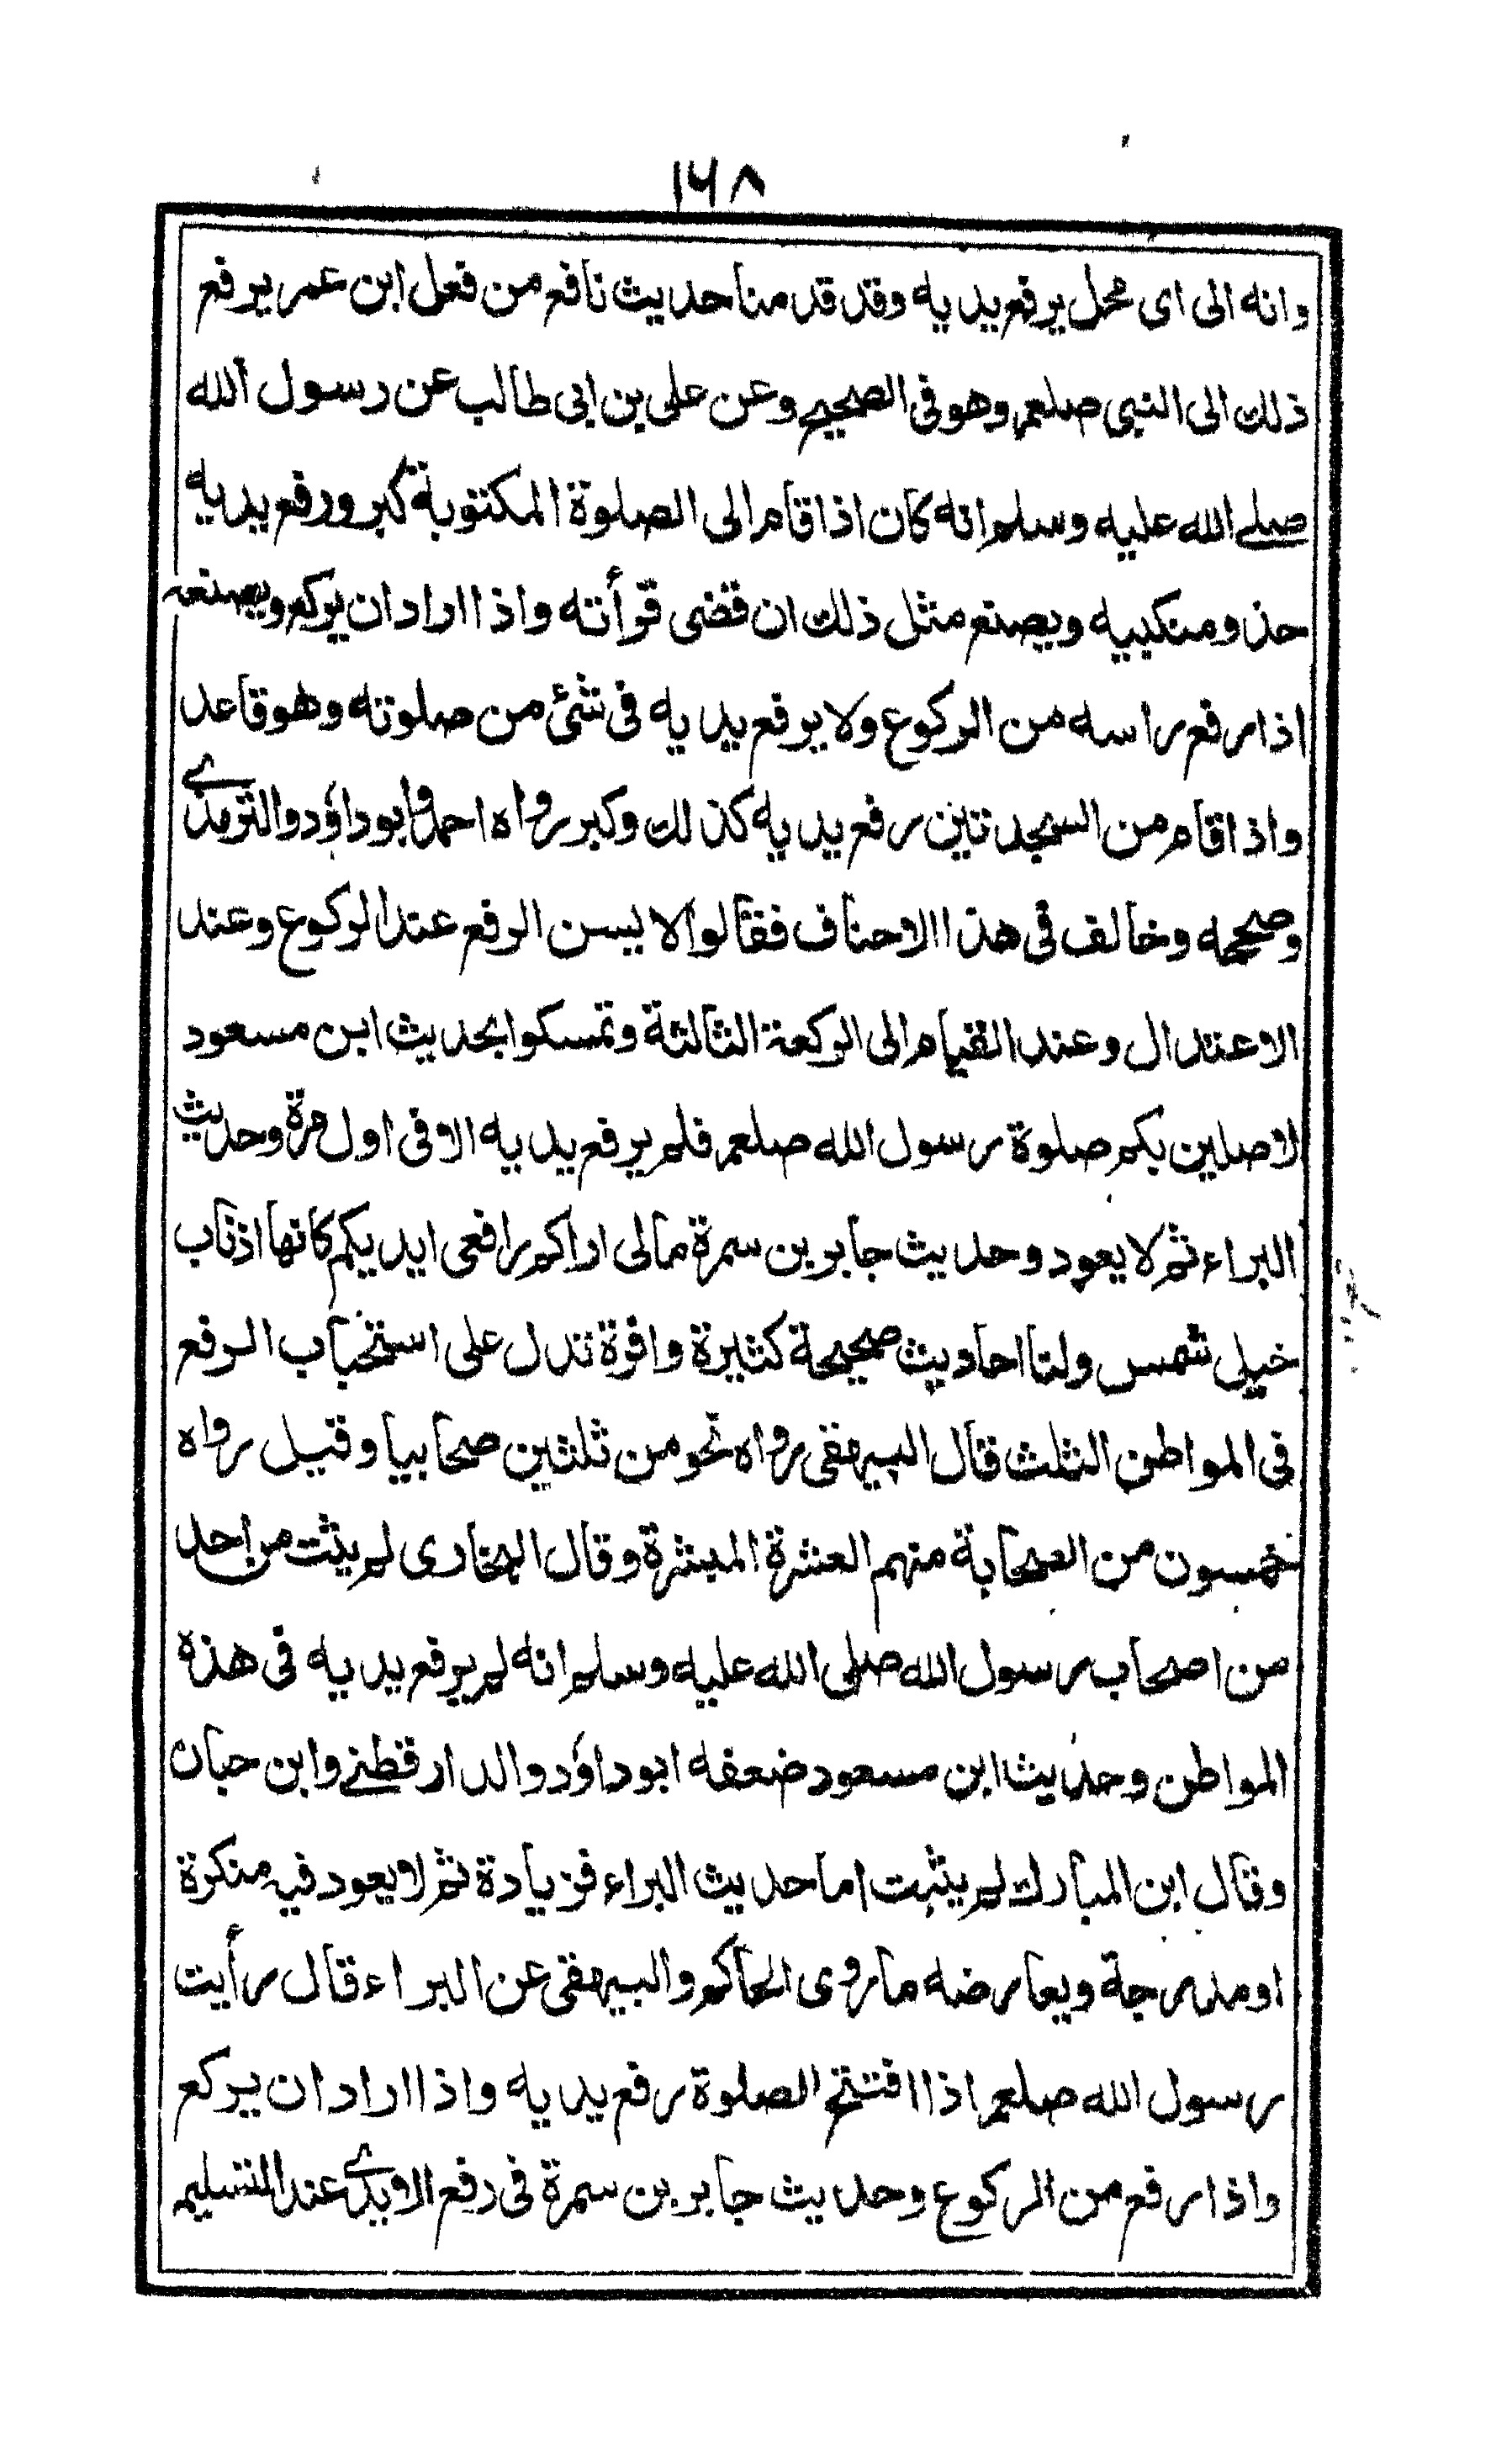 ١٦٨
وانه الى اى محل يرفع يديه وقد قدمنا حديث نافع من فعل ابن عمر يرفع
ذلك الى النبى صلعم وهو فى الصحيح وعن على بن ابى طالب عن رسول الله
صلے الله عليه وسلم انه كان اذا قام الى الصلوة المكتوبة كبر ورفع يديه
حذو منكبيه ويصنع مثل ذلك ان قضى قرأته واذا اراد ان يركع ويصنعه
اذا رفع راسه من الركوع ولا يرفع يديه فى شئ من صلوته وهو قاعد
واذا قام من السجدتين رفع يديه كذلك وكبر رواه احمد وابوداؤد والترمذے
وصححه وخالف فى هذا الاحناف فقالوا لا يسن الرفع عند الركوع وعند
الاعتدال وعند القيام الى الركعة الثالثة وتمسكوا بحديث ابن مسعود
لاصلين بكم صلوة رسول الله صلعم فلم يرفع يديه الا فى اول مرة وحديث
البراء ثم لا يعود وحديث جابر بن سمرة مالى اراكم رافعى ايديكم كانها اذناب
خيل شمس ولنا احاديث صحيحة كثيرة وافرة تدل على استحباب الرفع
فى المواطن الثلث قال البيهقى رواه نحو من ثلثين صحابيا وقيل رواه
خمسون من الصحابة منهم العشرة المبشرة وقال البخارى لم يثت من احد
من اصحاب رسول الله صلى الله عليه وسلم انه لم يرفع يديه فى هذه
المواطن وحديث ابن مسعود ضعفه ابوداؤد والدارقطنے وابن حبان
وقال ابن المبارك لم يثبت اما حديث البراء فزيادة ثم لا يعود فيه منكرة
او مدرجة ويعارضه ما روى الحاكم والبيهقى عن البراء قال رأيت
رسول الله صلعم اذا افتتح الصلوة رفع يديه واذا اراد ان يركع
واذا رفع من الركوع وحديث جابر بن سمرة فى رفع الايدے عند التسليم